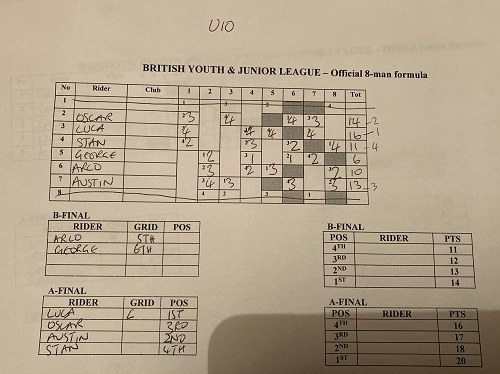 U10
BRITISH YOUTH & JUNIOR LEAGUE – Official 8-man formula
No Rider Club 1 2 3 4 5 6 7 8 Tot
1
2 OSCAR 3 4 4 3 14 -2
3 LUCA 4 4 4 4 16 -1
4 STAN 2 3 2 4 11 -4
5 GEORGE 2 1 1 2 6
6 ARLO 3 2 3 2 10
7 AUSTIN 4 3 3 3 13 -3
8
B-FINAL
RIDER GRID POS
ARLO 5TH
GEORGE 6TH
A-FINAL
RIDER GRID POS
LUCA 1ST
OSCAR 3RD
AUSTIN 2ND
STAN 4TH
B-FINAL
POS RIDER PTS
4TH 11
3RD 12
2ND 13
1ST 14
A-FINAL
POS RIDER PTS
4TH 16
3RD 17
2ND 18
1ST 20